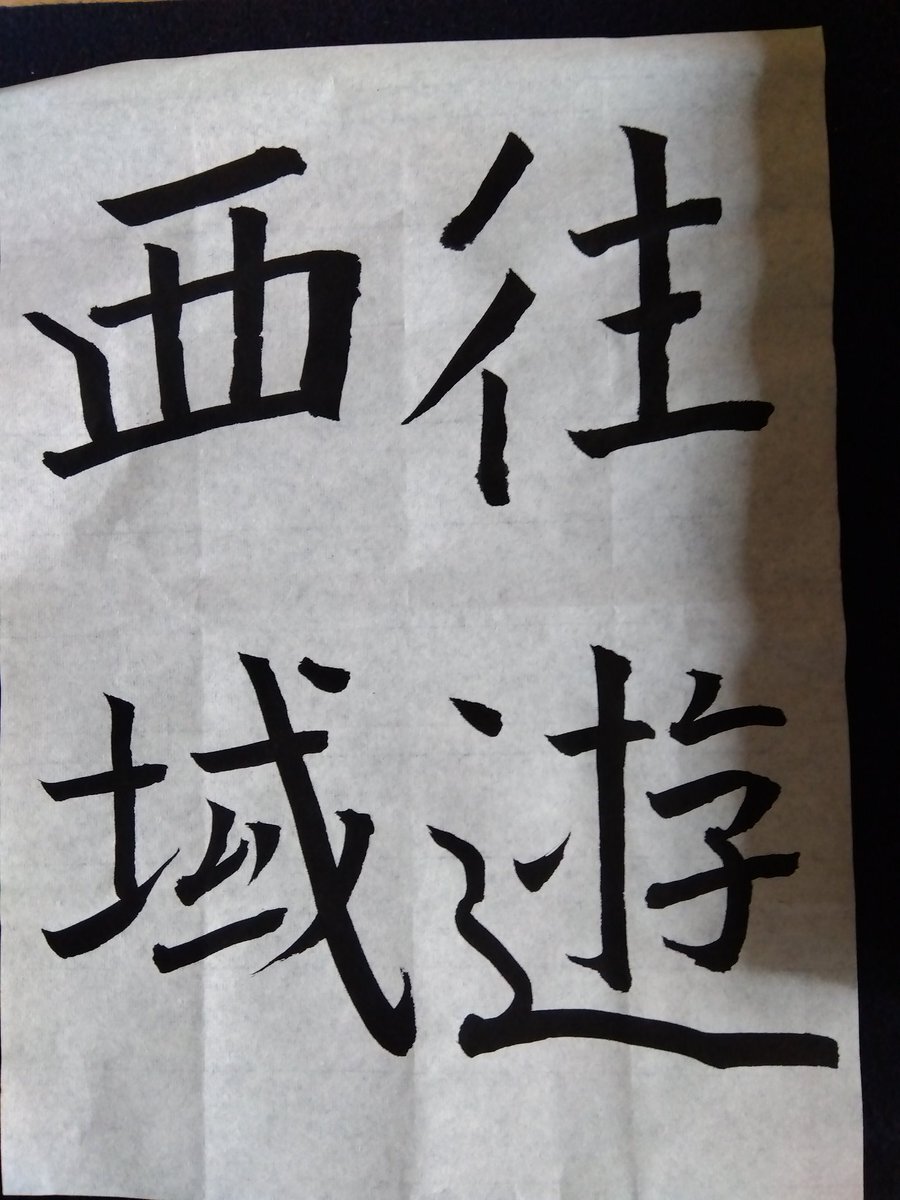 往遊
西域